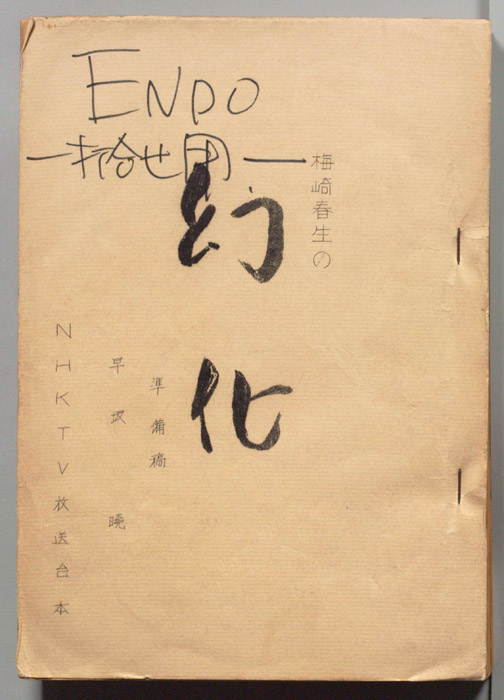 ENDO
梅崎春生の
幻化
準備稿
早坂 暁
NHKTV放送台本